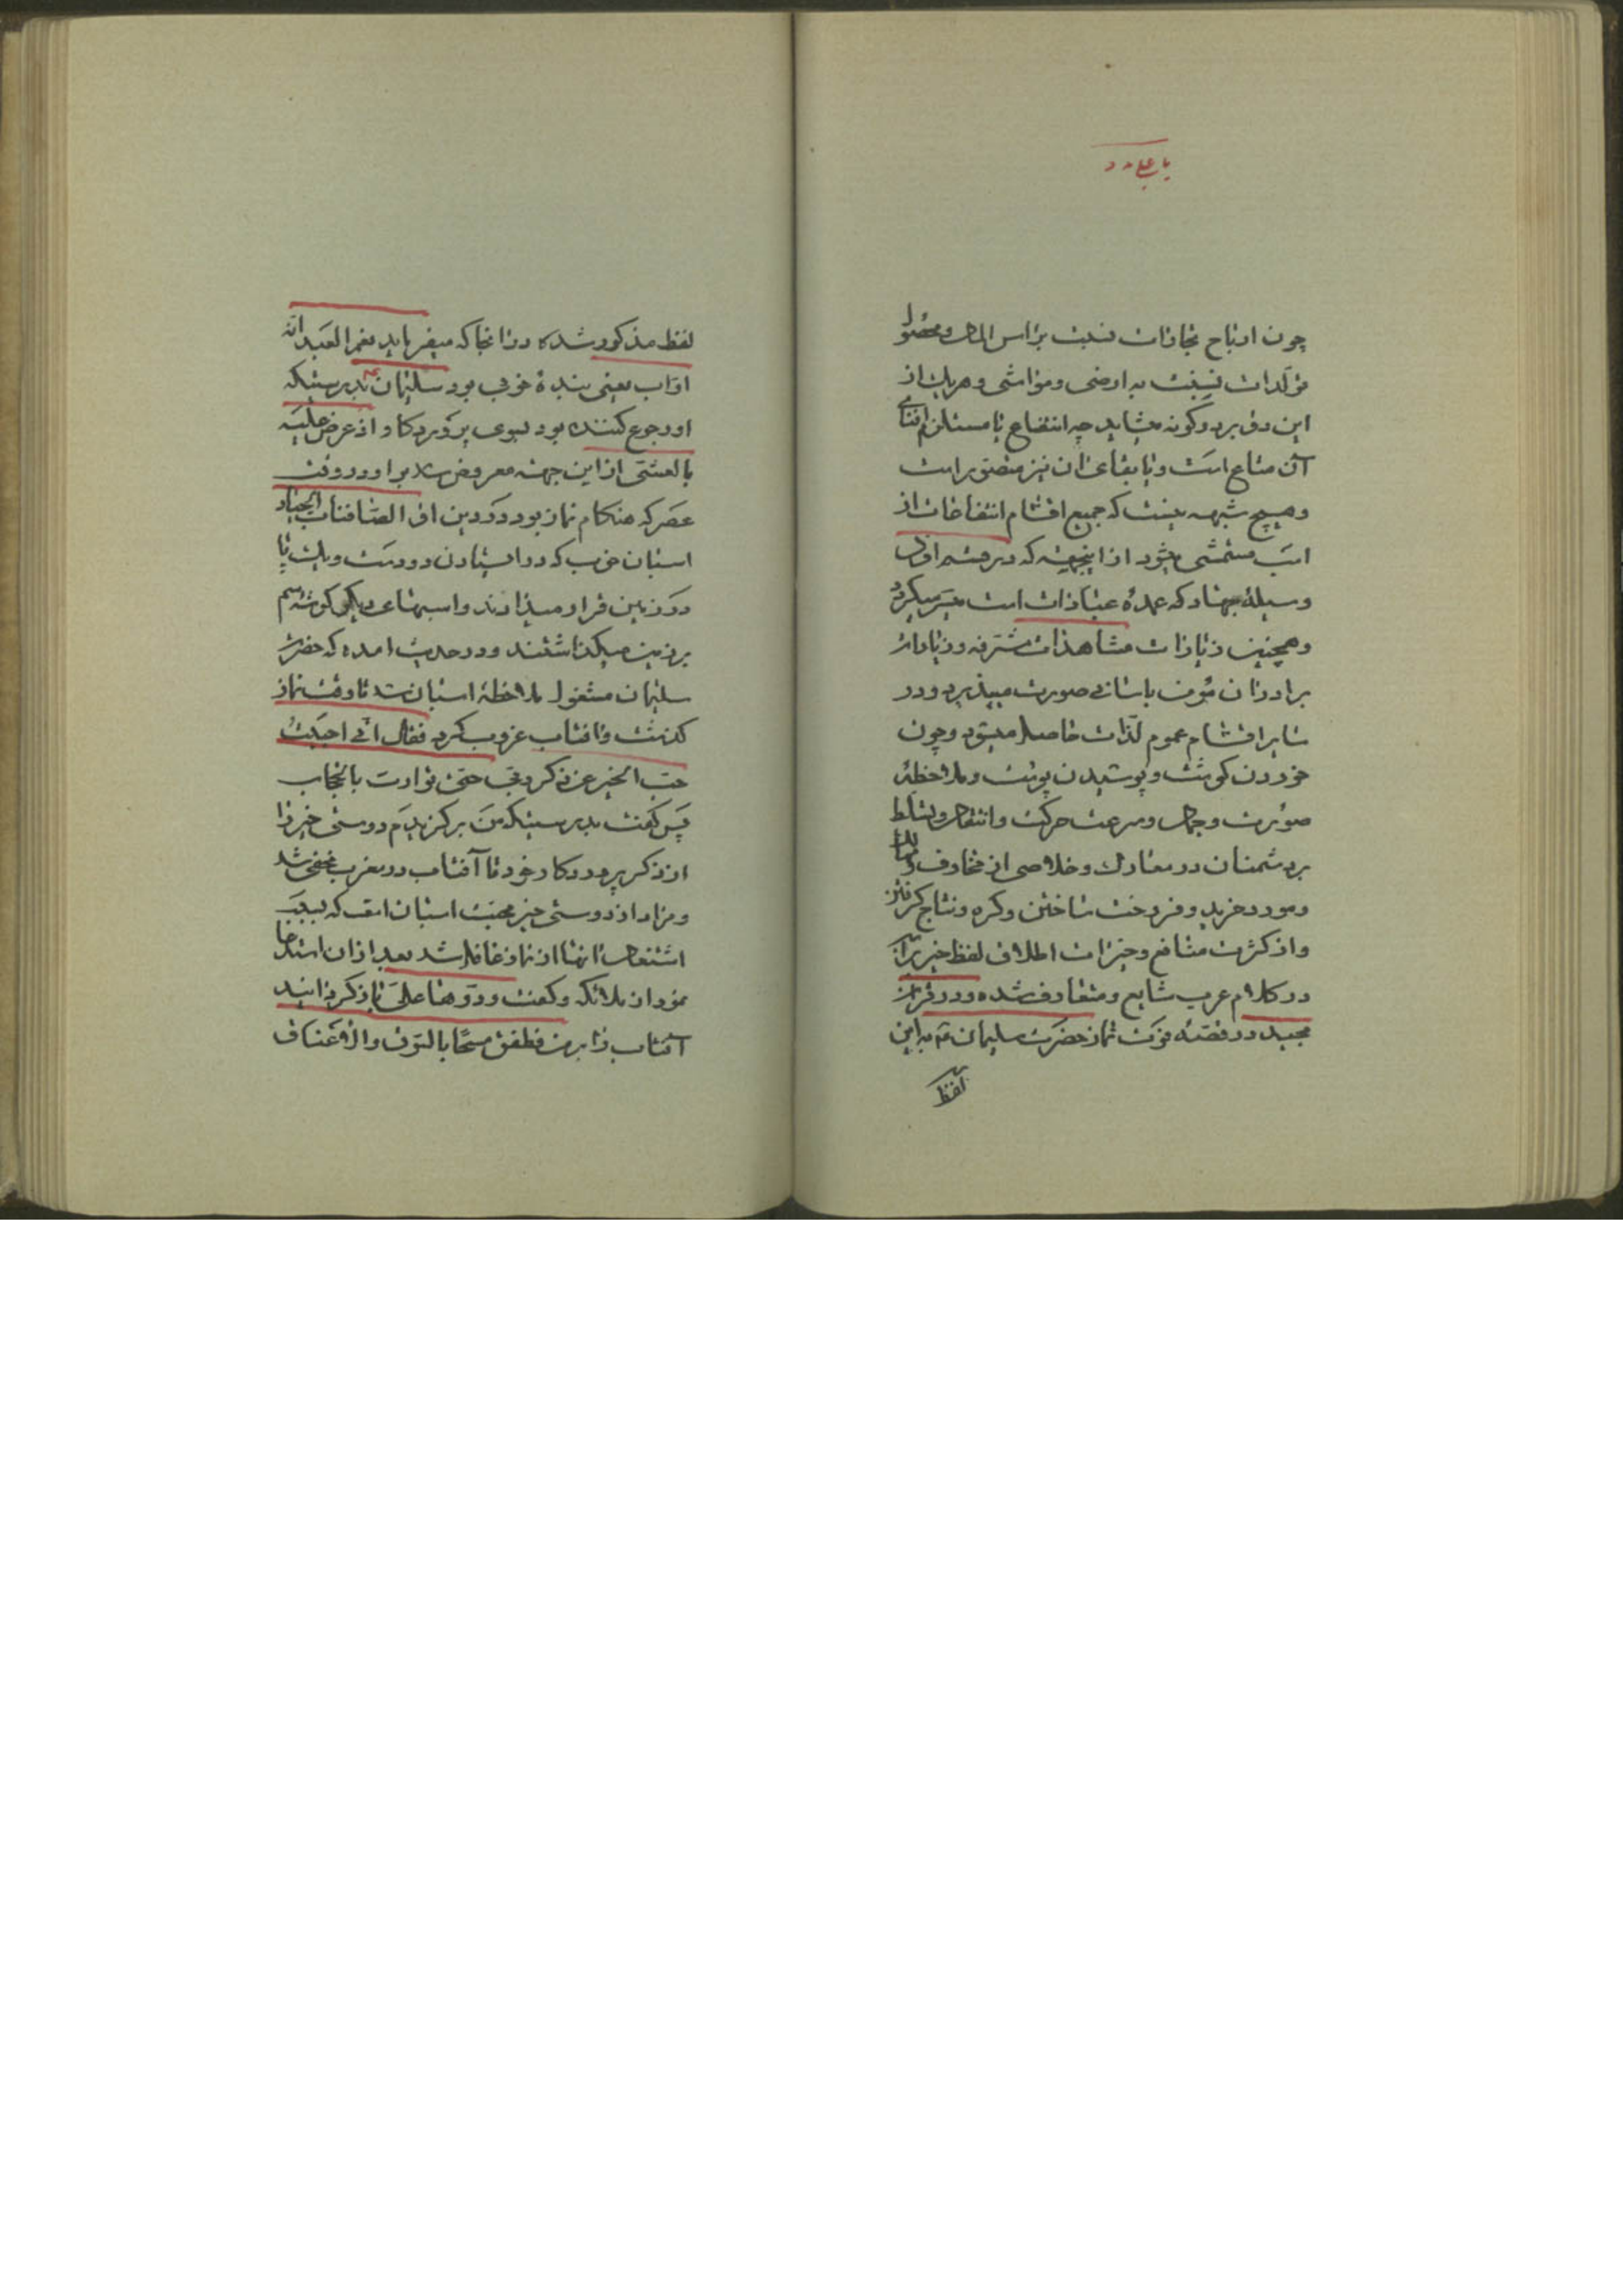 یا علی مدد
چون ارباح تجارات نسبت براس المال و محصول
تولدات نسبت به اراضی و مواشی و هر یک از
این دو بر دو کونه میباید چه انتفاع یا مستلزم افنای
آن متاع است و یا بقای ان نیز متصور است
و هیچ شبهه نیست که جمیع اقسام انتفاعات از
اسب متمشی میشود از اینجهة که در قسم اول
وسیلهٔ جهاد که عمدهٔ عبادات است میسر میکردد
و همچنین زیارات مشاهدات مشرفه و زیارات
برادران مؤمن باسانی صورت میپذیرد و در
سایر اقسام عموم لذات حاصل میشود و چون
خوردن کوشت و پوشیدن پوست و ملاحظهٔ
صورت و جمال و سرعت حرکت و انتقال و تسلط
بر دشمنان در معارك و خلاصی از مخاوف و مهالك
و سود خرید و فروخت ساختن و کره و نتاج کرفتن
و از کثرت منافع و خیرات اطلاق لفظ خیر بران
در کلام عرب شایع و متعارف شده و در قران
مجید در قصهٔ فوت نماز حضرت سلیمان ع به این
لفظ
لفظ مذکور شده در انجا که میفرماید نعم العبد انه
اواب یعنی بندهٔ خوبی بود سلیمان ع بدرستیکه
او رجوع کننده بود بسوی پروردکار اذ عرض علیه
بالعشی از این جهة معروض شد بر او در وقت
عصر که هنکام نماز بود الصافنات الجیاد
اسبان خوب که در ایستادن دو دست و یک پا
در زمین قرار میدادند و اسبهای دیکر کوشهٔ سم
بر زمین میکذاشتند و در حدیث امده که حضرت
سلیمان مشغول ملاحظهٔ اسبان شد تا وقت نماز
کذشت و افتاب غروب کرد فقال انی احببت
حب الخیر عن ذکر ربی حتی توارت بالحجاب
پس کفت بدرستیکه من برکزیدم دوستی خیر را
از ذکر پروردکار خود تا آفتاب در مغرب مخفی شد
و مراد از دوستی خیر محبت اسبان است که بسبب
اشتغال انها از نماز غافل شد بعد از ان استدعا
نمود از ملائکه و کفت ردوها علی باز کردانید
آفتاب را بر من فطفق مسحا بالسوق والاعناق